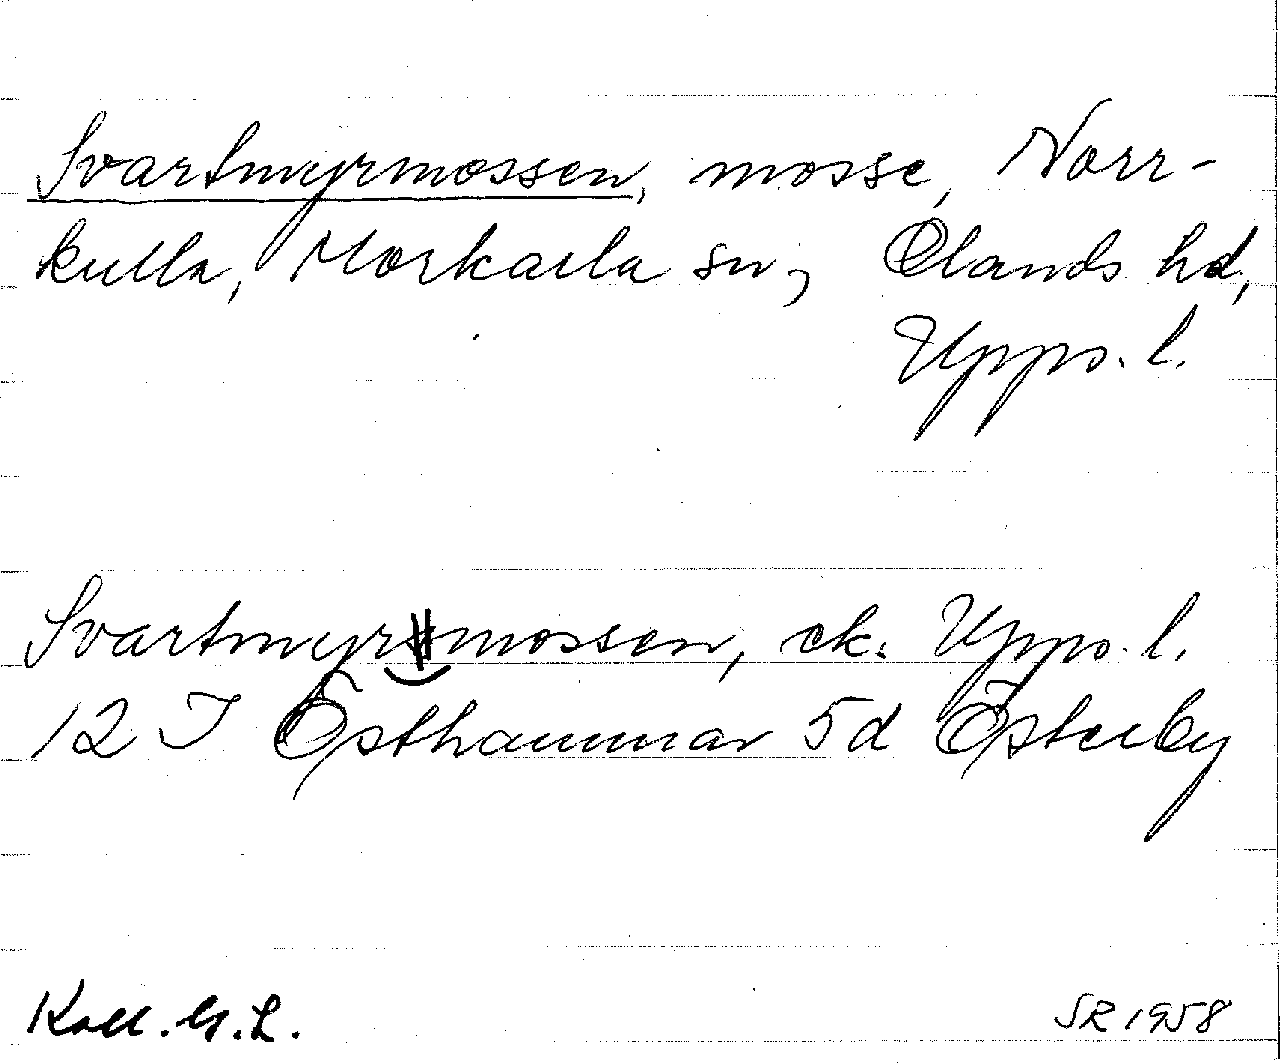 Svartmyrmossen, mosse, Norr-
kulla, Morkarla sn, Olands hd,
Upps. l.
Svartmyrmossen, ek. Upps. l.
12 I Östhammar 5d Österby
Koll. G. L.
SR 1958